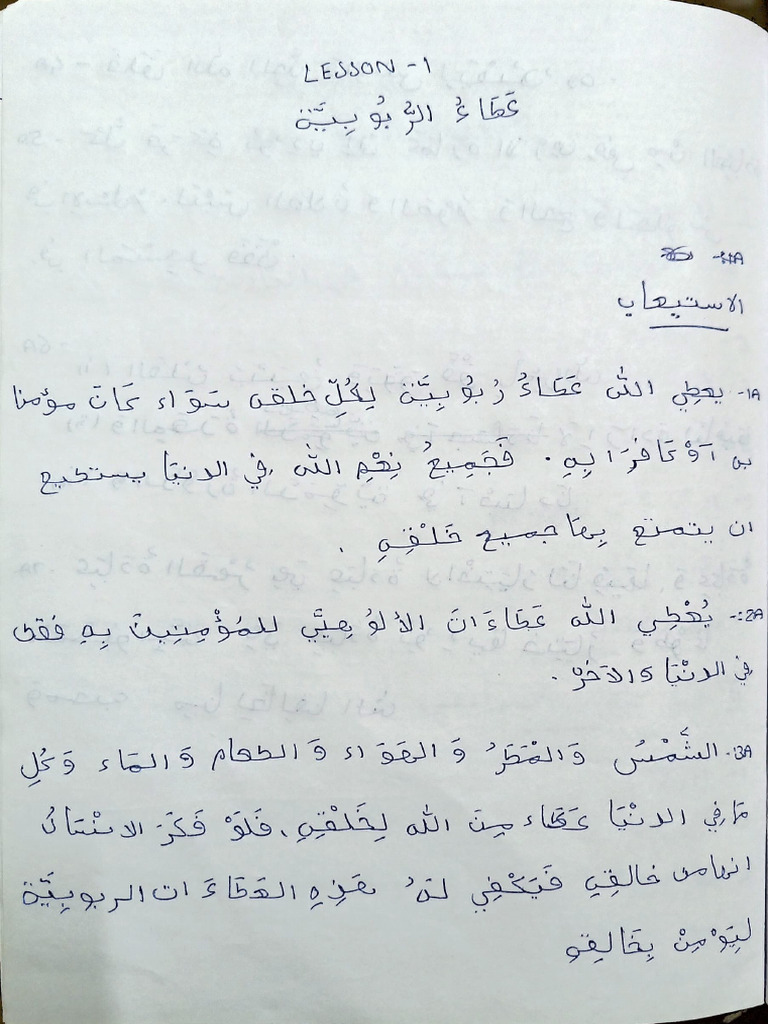 LESSON - 1
عَطَاءُ الرُّبُوبِيَّة
الاستيعاب
1A- يعطِي الله عَطَاءُ رُبُوبِيَّة لِكُلِّ خلقه سَوَاء كَانَ مؤمنا
به اَوْ كَافِرًا بِهِ. فَجَمِيعُ نِعَمِ الله فِي الدنيَا يستطيع
ان يتمتع بِهَا جميع خَلْقِهِ.
2A- يُعْطِي الله عَطَاءَاتَ الأُلوُهِيَّي للمُؤْمِنِينَ بِهِ فقط
فِي الدنْيَا والآخرة.
3A- الشَّمْسُ وَالْمَطَرُ وَ الهَوَاء وَ الطعام وَ المَاء وَ كُلِ
مَا فِي الدنْيَا عَطَاء مِنَ الله لِخَلْقِهِ، فَلَوْ فَكَرَ الانْسَانُ
انها من خالقِهِ فَيَكْفِي لَهُ هَذِهِ العَطَاءَات الربوبِيَّة
لِيَوْمِنْ بِخَالِقِهِ